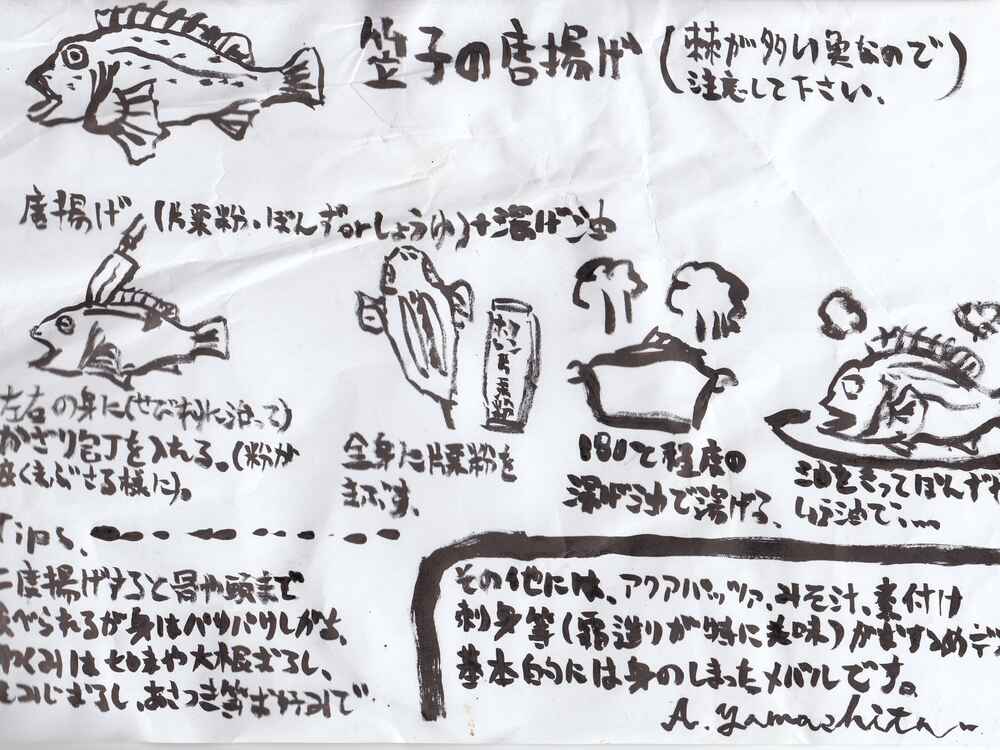 笠子の唐揚げ
(棘が多い魚なので
注意して下さい、)
唐揚げ (片栗粉・ぽんずorしょうゆ)+揚げ油
左右の身に(せびれに沿って)
かざり包丁を入れる。(粉が
よくまぶさる様に)。
片栗粉
全身に片栗粉を
まぶす。
180℃程度の
揚げ油で揚げる、
油をきってぽんずや
しょう油で、…
Tips、
二度揚げすると骨や頭まで
食べられるが身はパリパリしがち、
やくみは七味や大根おろし、
もみじおろし、あさつき等お好みで
その他には、アクアパッツァ、みそ汁、煮付け
刺身等(霜造りが特に美味)がおすすめデ
基本的には身のしまったメバルです。
A. Yamashita